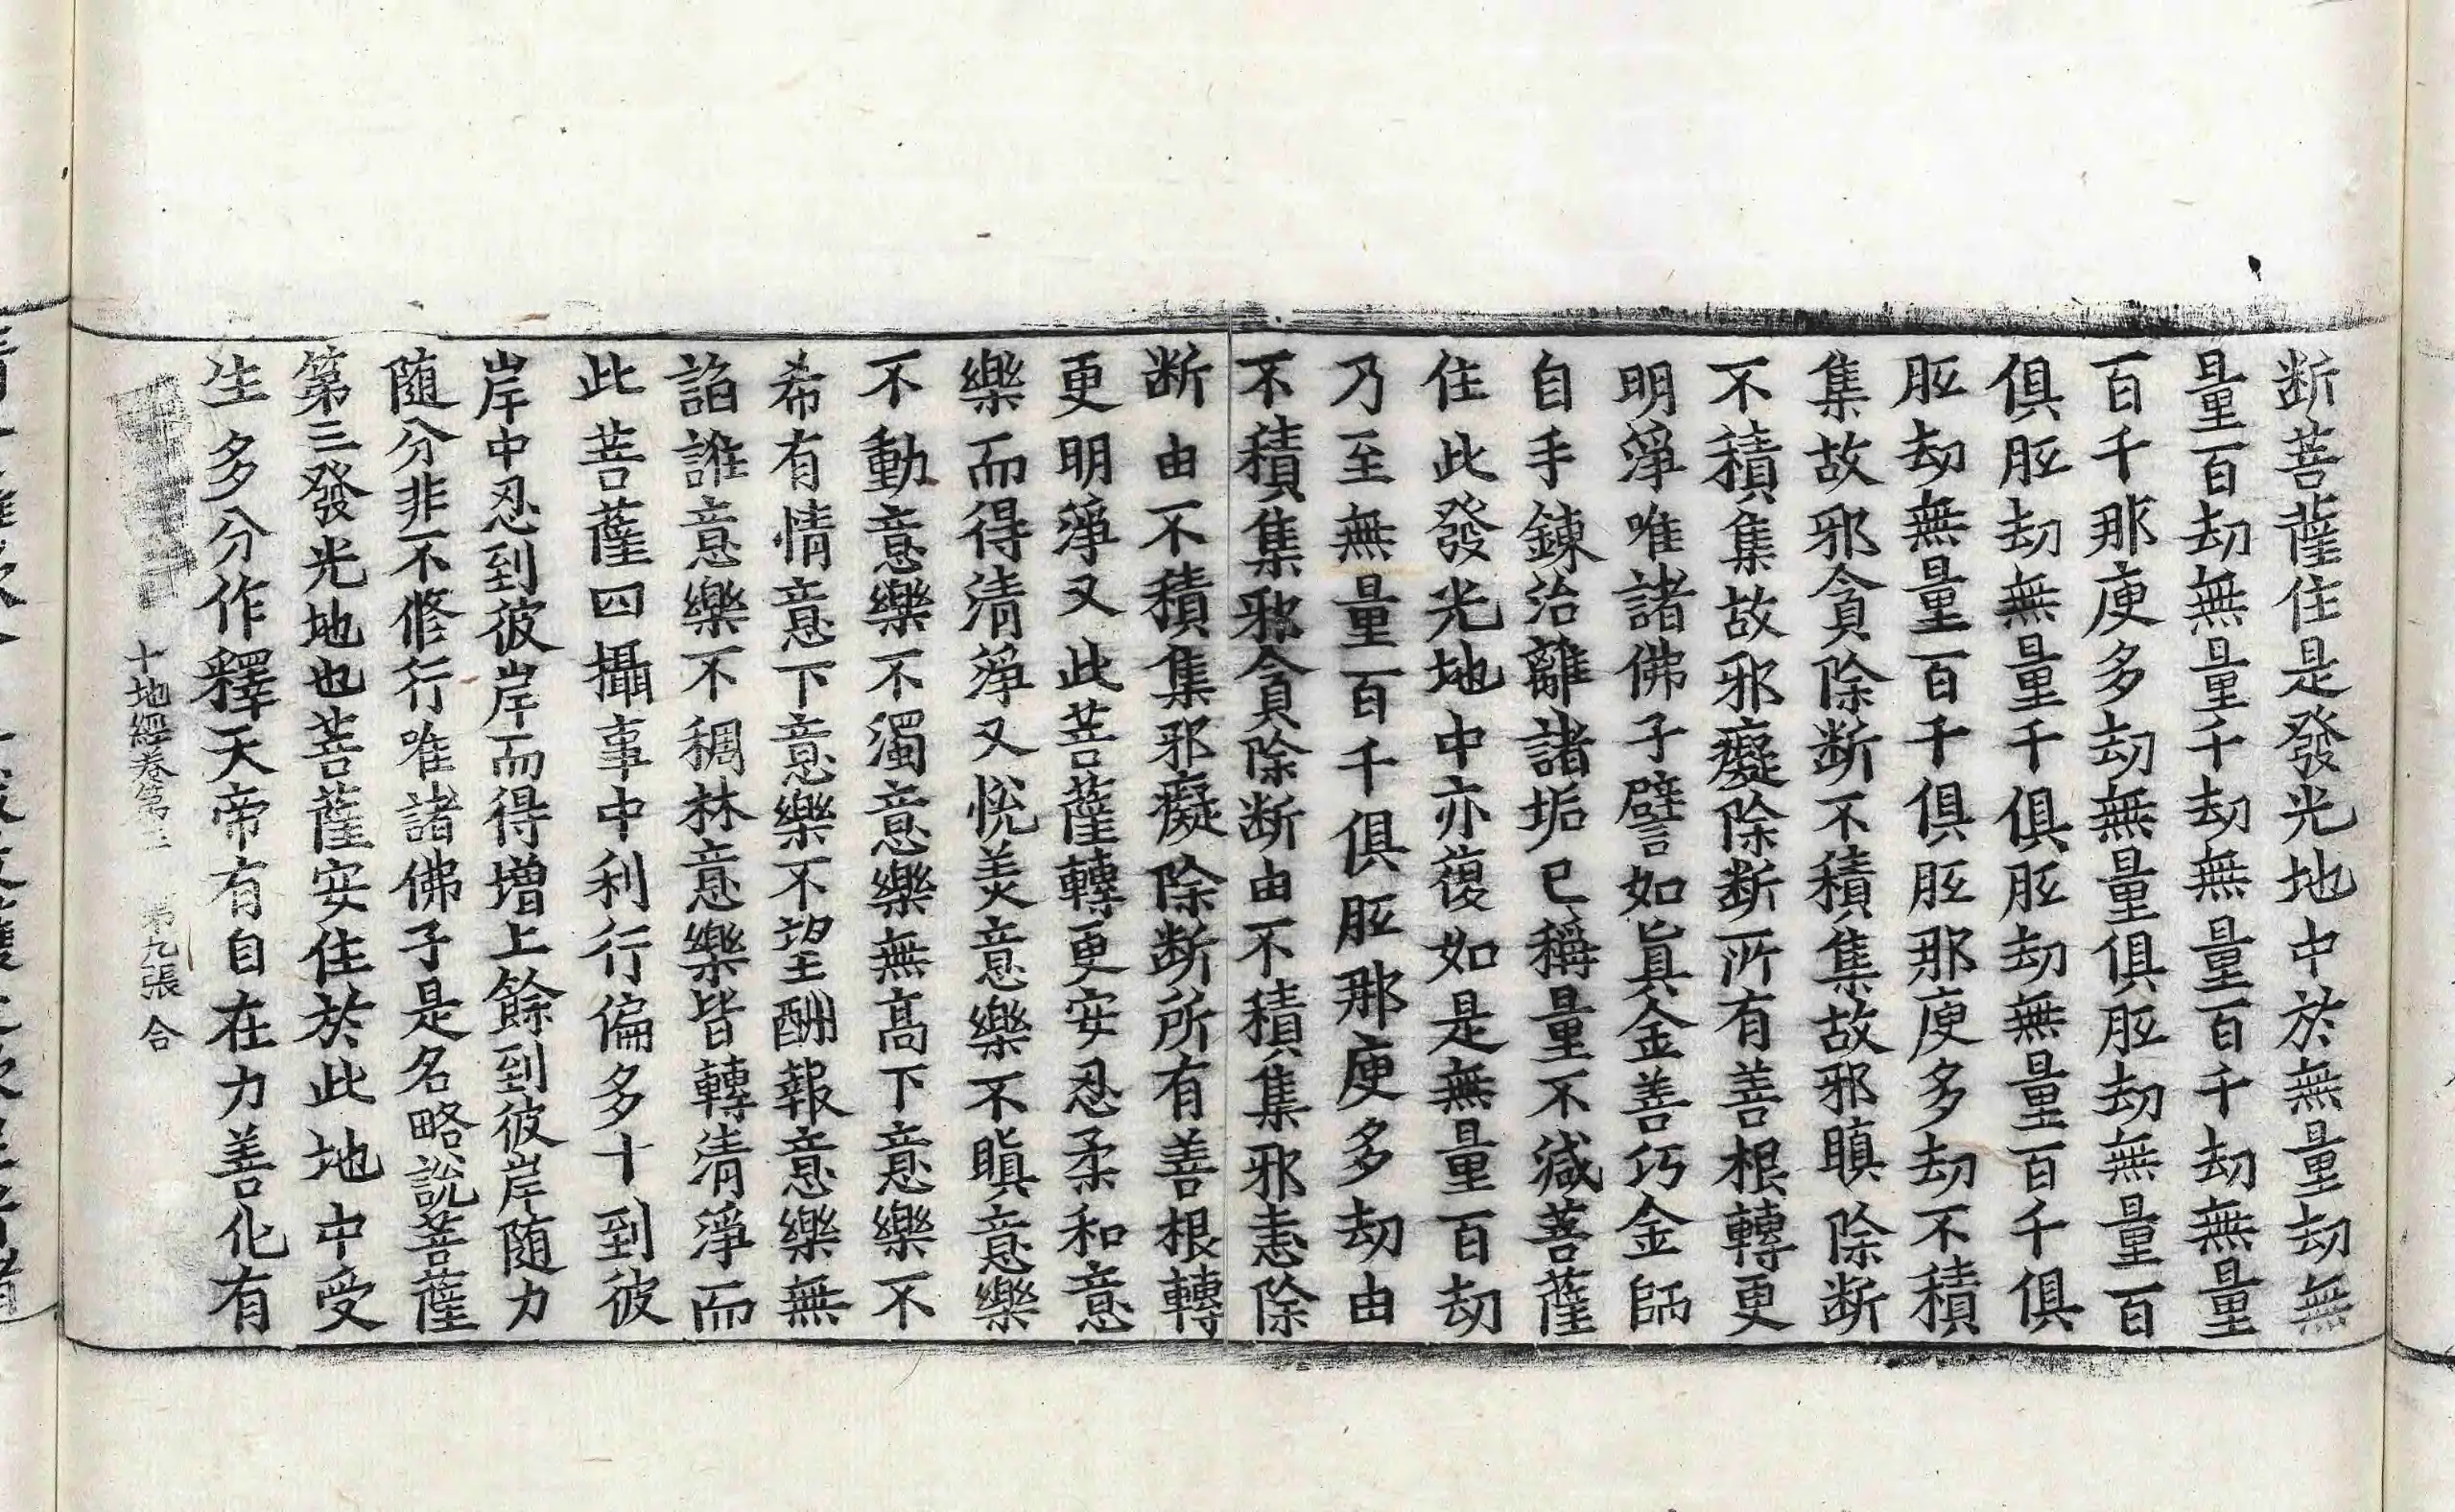 断菩薩住是發光地中於無量劫無
量百劫無量千劫無量百千劫無量
百千那庾多劫無量俱胝劫無量百
俱胝劫無量千俱胝劫無量百千俱
胝劫無量百千俱胝那庾多劫不積
集故邪貪除断不積集故邪瞋除断
不積集故邪癡除断所有善根轉更
明淨唯諸佛子譬如眞金善巧金師
自手鍊治離諸垢已稱量不減菩薩
住此發光地中亦復如是無量百劫
乃至無量百千俱胝那庾多劫由
不積集邪貪除断由不積集邪恚除
断由不積集邪癡除断所有善根轉
更明淨又此菩薩轉更安忍柔和意
樂而得清淨又悅美意樂不瞋意樂
不動意樂不濁意樂無高下意樂不
希有情意下意樂不望酬報意樂無
諂誰意樂不稠林意樂皆轉清淨而
此菩薩四攝事中利行偏多十到彼
岸中忍到彼岸而得增上餘到彼岸随力
随分非不修行唯諸佛子是名略說菩薩
第三發光地也菩薩安住於此地中受
生多分作釋天帝有自在力善化有
十地經卷第三 第九張 合